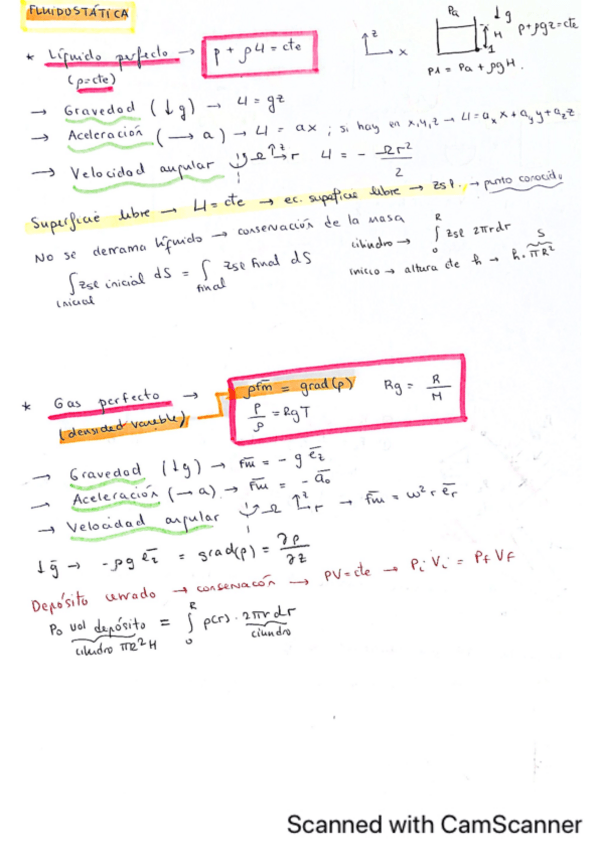 FLUIDOSTÁTICA
* Líquido perfecto → p + ρU = cte
(ρ=cte)
z
x
Pa
↓g
H
1
p+ρgz=cte
p1 = Pa + ρgH.
→ Gravedad (↓g) → U = gz
→ Aceleración (→ a) → U = ax ; si hay en x,y,z → U = a_x x + a_y y + a_z z
→ Velocidad angular Ω z r U = - Ωr²/2
Superficie libre → U = cte → ec. superficie libre → zsl. → punto conocido
No se derrama líquido → conservación de la masa
∫inicial zsl inicial dS = ∫final zsl final dS
cilindro → ∫₀ᴿ zsl 2πrdr
inicio → altura de h → h·πR² S
* Gas perfecto →
(densidad variable)
ρf̄m = grad(p) Rg = R/M
p/ρ = RgT
→ Gravedad (↓g) → f̄m = - g ēz
→ Aceleración (→ a) → f̄m = - ā₀
→ Velocidad angular Ω z r → f̄m = ω² r ēr
↓ḡ → -ρg ēz = grad(p) = ∂p/∂z
Depósito cerrado → conservación → PV=cte → Pi Vi = Pf Vf
P₀ vol depósito = ∫₀ᴿ p(r) · 2πr dr
cilindro πR²H
cilindro
Scanned with CamScanner